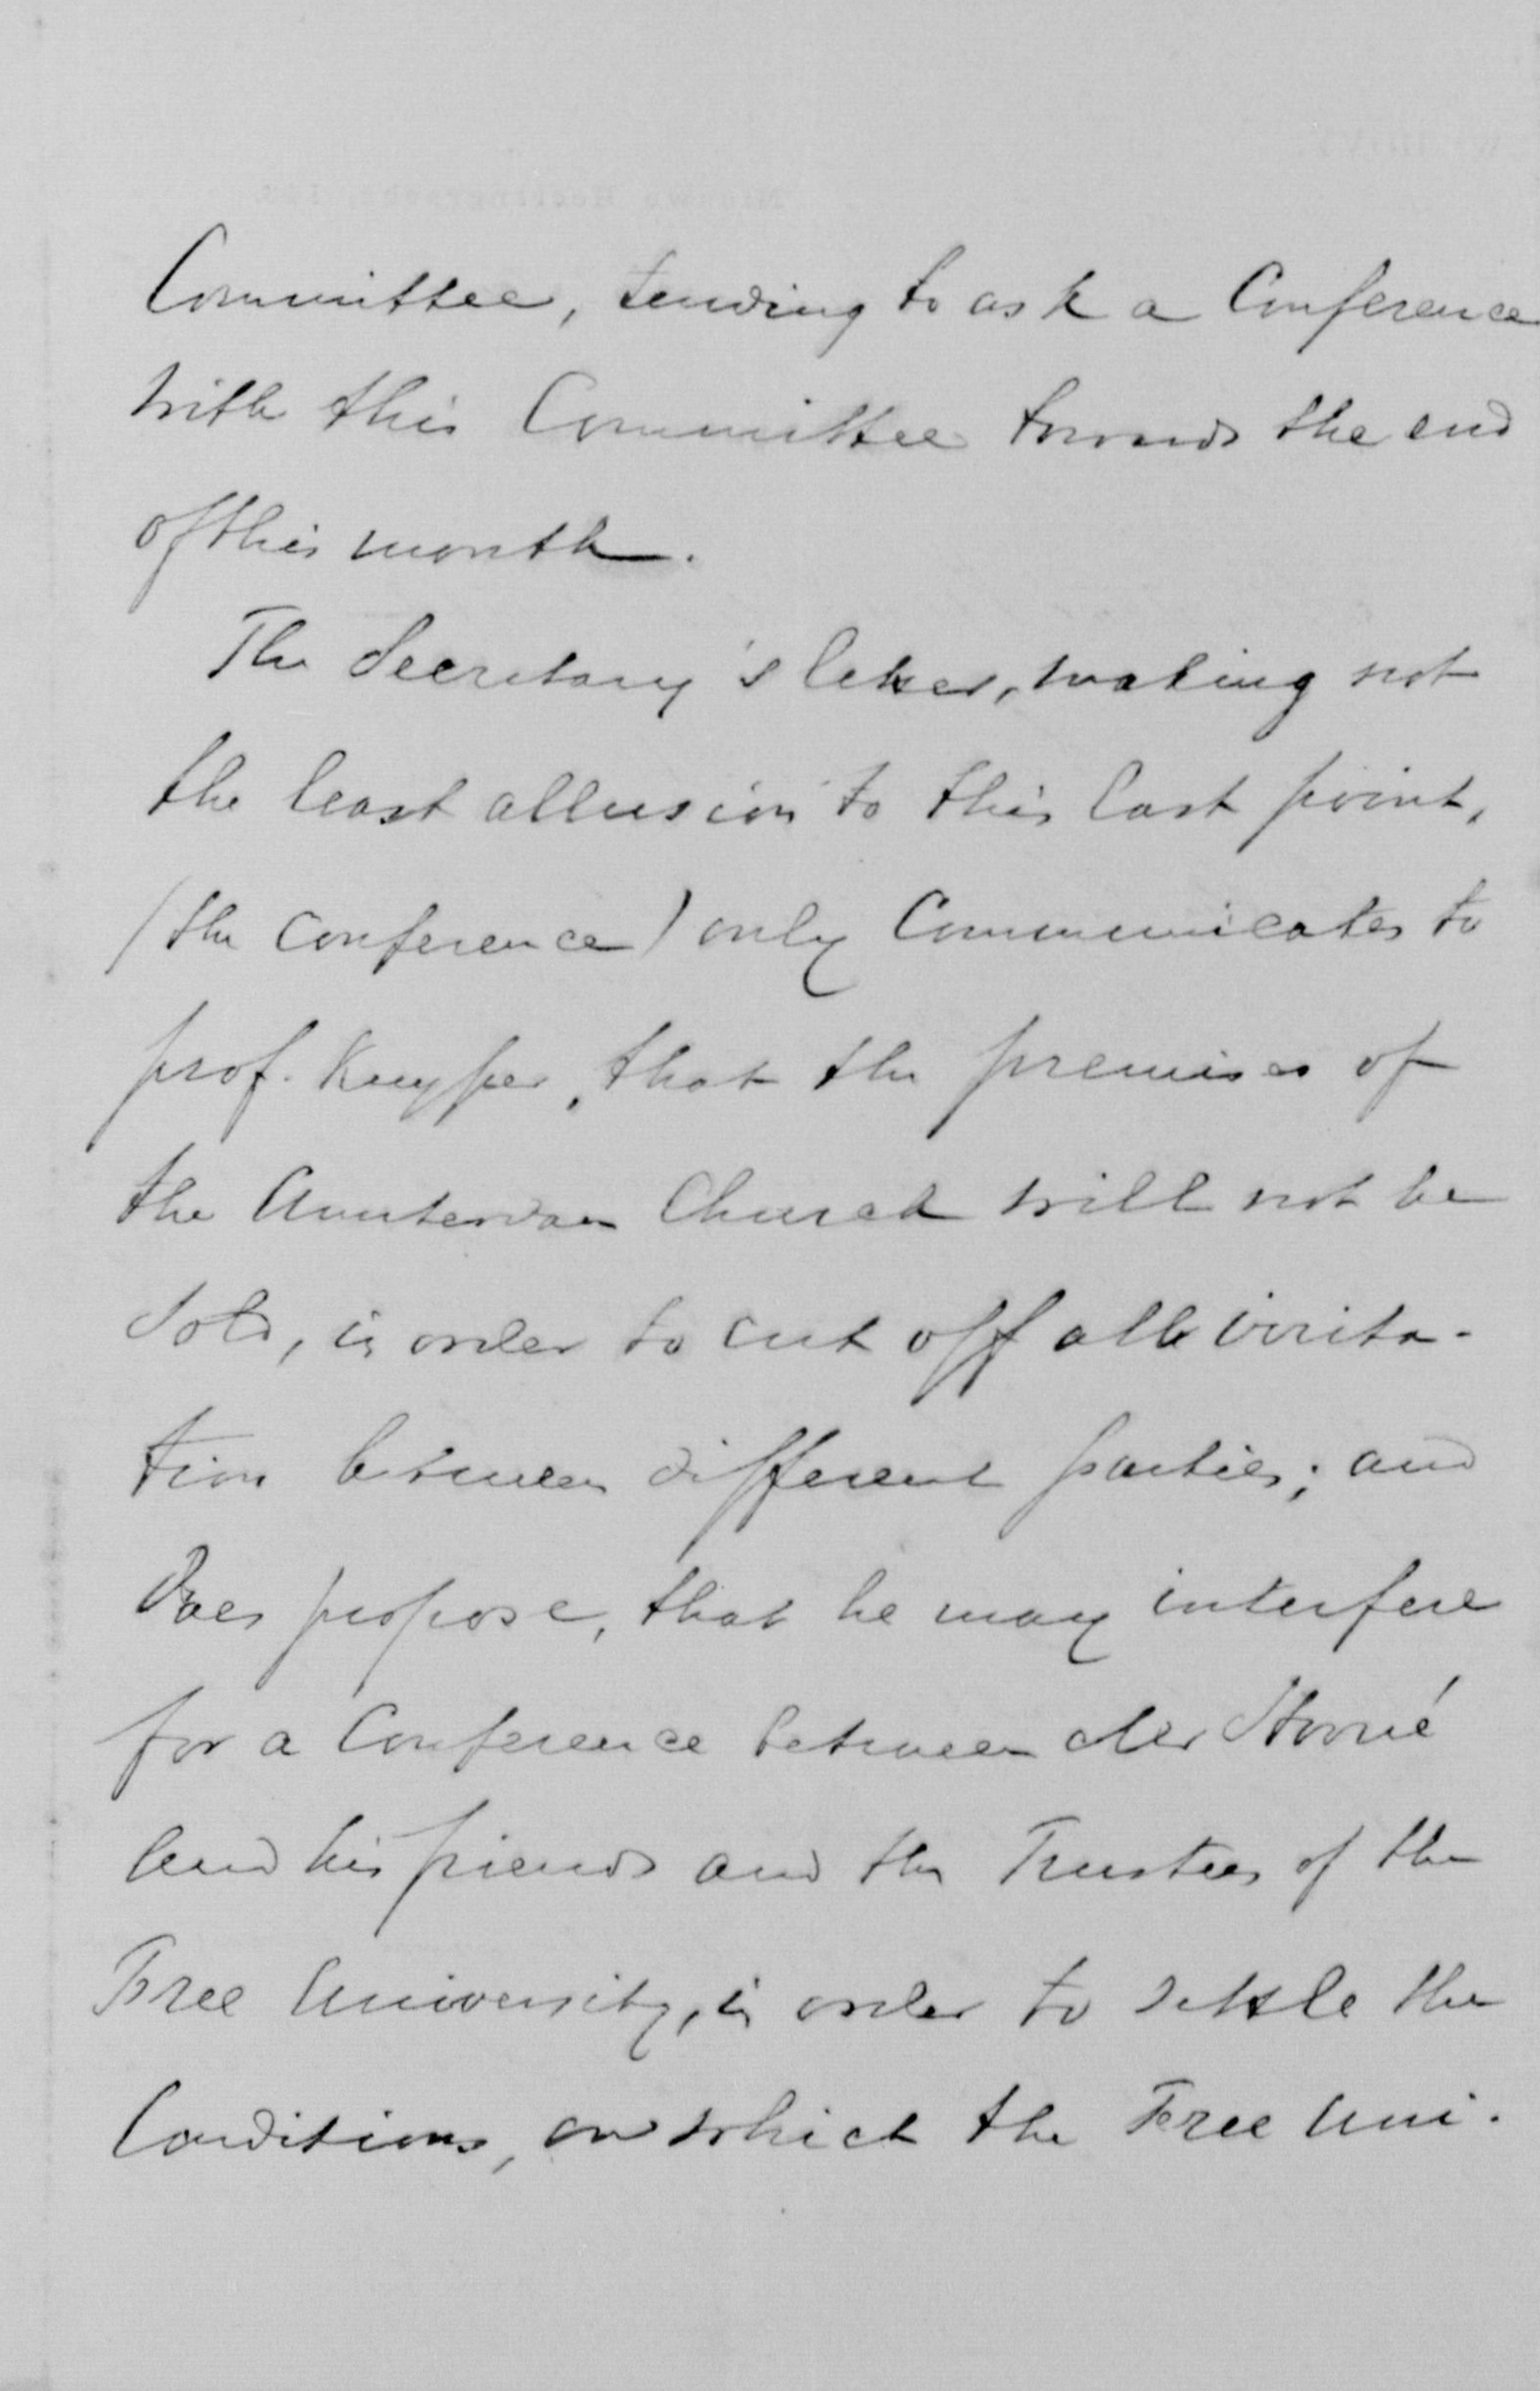 Committee, tending to ask a Conference
with this Committee towards the end
of this month.
The Secretary's letter, making not
the least allusion to this last point,
(the conference) only Communicates to
prof. Kuyper, that the premises of
the Amsterdam Church will not be
Sold, in order to cut off all irrita-
tion between different parties; and
does propose, that he may interfere
for a Conference between
and his friends and the Trustees of the
Free University, in order to settle the
Conditions, on which the Free Uni-